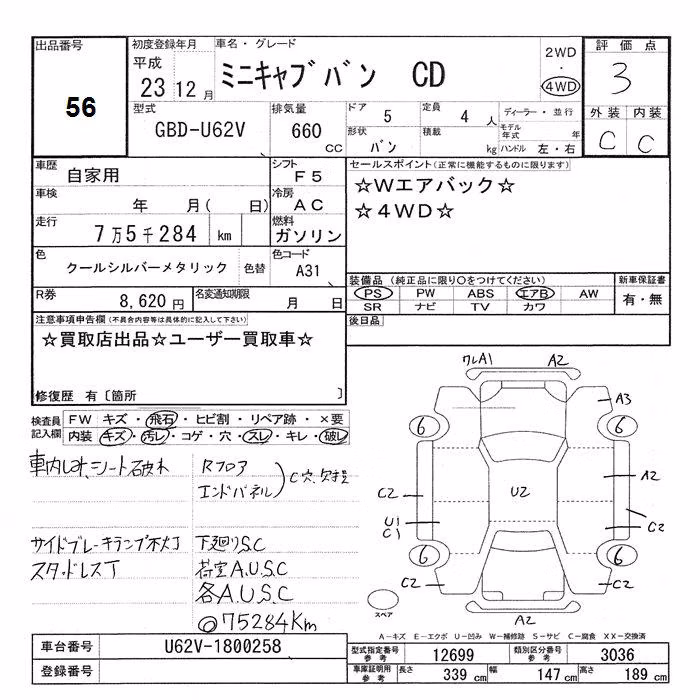 出品番号
56
初度登録年月
平成
23 12 月
車名・グレード
ミニキャブバン CD
2WD
・
4WD
評価点
3
外装 内装
C C
型式
GBD-U62V
排気量
660
cc
ドア
5
定員
4 人
形状
バン
積載
kg
ディーラー・並行
モデル
年式 年
ハンドル 左・右
車歴
自家用
シフト
F5
車検
年 月( 日)
冷房
AC
走行
7万5千284 km
燃料
ガソリン
色
クールシルバーメタリック
色替
色コード
A31
R券
8,620 円
名変通知期限
月 日
セールスポイント(正常に機能するものに限ります)
☆Wエアバック☆
☆4WD☆
装備品 (純正品に限り○をつけてください)
PS PW ABS エアB AW
SR ナビ TV カワ
新車保証書
有・無
後日品
注意事項申告欄(不具合内容等は具体的に記入して下さい)
☆買取店出品☆ユーザー買取車☆
修復歴 有〔箇所 〕
検査員
記入欄
FW キズ・飛石・ヒビ割・リペア跡・×要
内装 キズ・汚レ・コゲ・穴・スレ・キレ・破レ
車内しみ、シート破れ
Rフロア
エンドパネル
C穴、欠損
サイドブレーキランプ不灯
スタッドレスT
下廻りS.C
荷室A.U.S.C
各A.U.S.C
◎75284Km
ワレA1
A2
A3
6
6
A2
C2
U2
U1
C1
C2
6
6
C2
C2
A2
スペア
A-キズ E-エクボ U-凹み W-補修跡 S-サビ C-腐食 XX-交換済
車台番号
U62V-1800258
登録番号
型式指定番号
参考
12699
類別区分番号
参考
3036
車庫証明用
参考
長さ
339 cm
幅
147 cm
高さ
189 cm